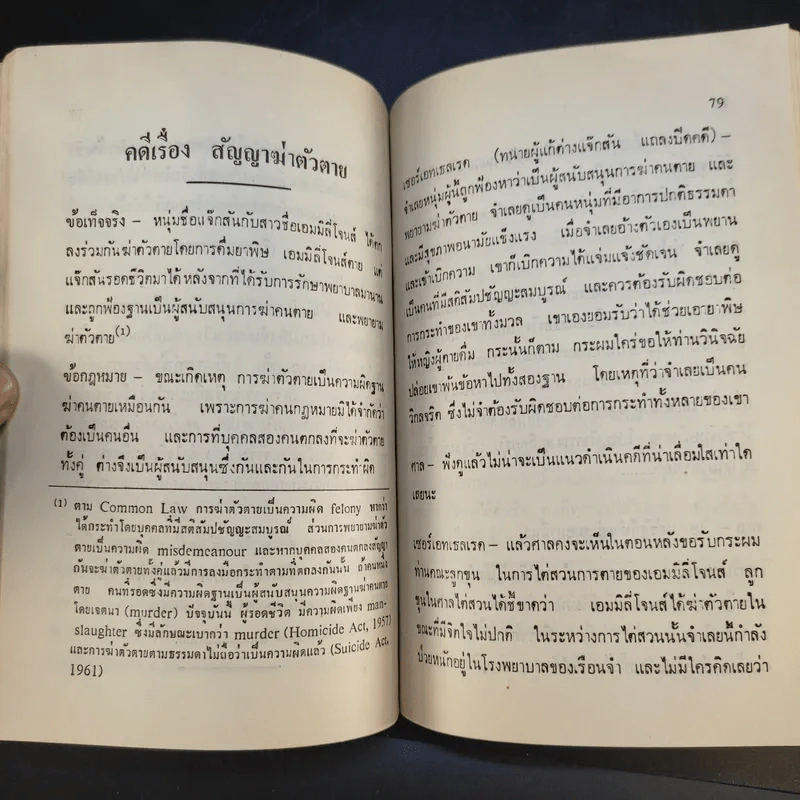 คดีเรื่อง สัญญาฆ่าตัวตาย
ข้อเท็จจริง – หนุ่มชื่อแจ๊กสันกับสาวชื่อเอมมิลี่โจนส์ ได้ตก
ลงร่วมกันฆ่าตัวตายโดยการดื่มยาพิษ เอมมิลี่โจนส์ตาย แต่
แจ๊กสันรอดชีวิตมาได้หลังจากที่ได้รับการรักษาพยาบาลมานาน
และถูกฟ้องฐานเป็นผู้สนับสนุนการฆ่าคนตาย และพยายาม
ฆ่าตัวตาย(1)
ข้อกฎหมาย – ขณะเกิดเหตุ การฆ่าตัวตายเป็นความผิดฐาน
ฆ่าคนตายเหมือนกัน เพราะการฆ่าคนกฎหมายมิได้จำกัดว่า
ต้องเป็นคนอื่น และการที่บุคคลสองคนตกลงที่จะฆ่าตัวตาย
ทั้งคู่ ต่างจึงเป็นผู้สนับสนุนซึ่งกันและกันในการกระทำผิด
(1) ตาม Common Law การฆ่าตัวตายเป็นความผิด felony หากว่า
ได้กระทำโดยบุคคลที่มีสติสัมปชัญญะสมบูรณ์ ส่วนการพยายามฆ่าตัว
ตายเป็นความผิด misdemeanour และหากบุคคลสองคนตกลงสัญญา
กันจะฆ่าตัวตายทั้งคู่แล้วมีการลงมือกระทำตามที่ตกลงกันนั้น ถ้าคนหนึ่ง
ตาย คนที่รอดซึ่งมีความผิดฐานเป็นผู้สนับสนุนความผิดฐานฆ่าคนตาย
โดยเจตนา (murder) ปัจจุบันนี้ ผู้รอดชีวิต มีความผิดเพียง man-
slaughter ซึ่งมีลักษณะเบากว่า murder (Homicide Act, 1957)
และการฆ่าตัวตายตามธรรมดาไม่ถือว่าเป็นความผิดแล้ว (Suicide Act,
1961)
79
เซอร์เอทเธลเรด (ทนายผู้แก้ต่างแจ๊กสัน แถลงปิดคดี) –
จำเลยหนุ่มผู้นี้ถูกฟ้องหาว่าเป็นผู้สนับสนุนการฆ่าคนตาย และ
พยายามฆ่าตัวตาย จำเลยดูเป็นคนหนุ่มที่มีอาการปกติธรรมดา
และมีสุขภาพอนามัยแข็งแรง เมื่อจำเลยอ้างตัวเองเป็นพยาน
และเข้าเบิกความ เขาก็เบิกความได้แจ่มแจ้งชัดเจน จำเลยดู
เป็นคนที่มีสติสัมปชัญญะสมบูรณ์ และควรต้องรับผิดชอบต่อ
การกระทำของเขาทั้งมวล เขาเองยอมรับว่าได้ช่วยเอายาพิษ
ให้หญิงผู้ตายดื่ม กระนั้นก็ตาม กระผมใคร่ขอให้ท่านวินิจฉัย
ปล่อยเขาพ้นข้อหาไปทั้งสองฐาน โดยเหตุที่ว่าจำเลยเป็นคน
วิกลจริต ซึ่งไม่จำต้องรับผิดชอบต่อการกระทำทั้งหลายของเขา
ศาล – ฟังดูแล้วไม่น่าจะเป็นแนวดำเนินคดีที่น่าเลื่อมใสเท่าใด
เลยนะ
เซอร์เอทเธลเรด – แล้วศาลคงจะเห็นในตอนหลังขอรับกระผม
ท่านคณะลูกขุน ในการไต่สวนการตายของเอมมิลี่โจนส์ ลูก
ขุนในศาลไต่สวนได้ชี้ขาดว่า เอมมิลี่โจนส์ได้ฆ่าตัวตายใน
ขณะที่มีจิตใจไม่ปกติ ในระหว่างการไต่สวนนั้นจำเลยนี้กำลัง
ป่วยหนักอยู่ในโรงพยาบาลของเรือนจำ และไม่มีใครคิดเลยว่า